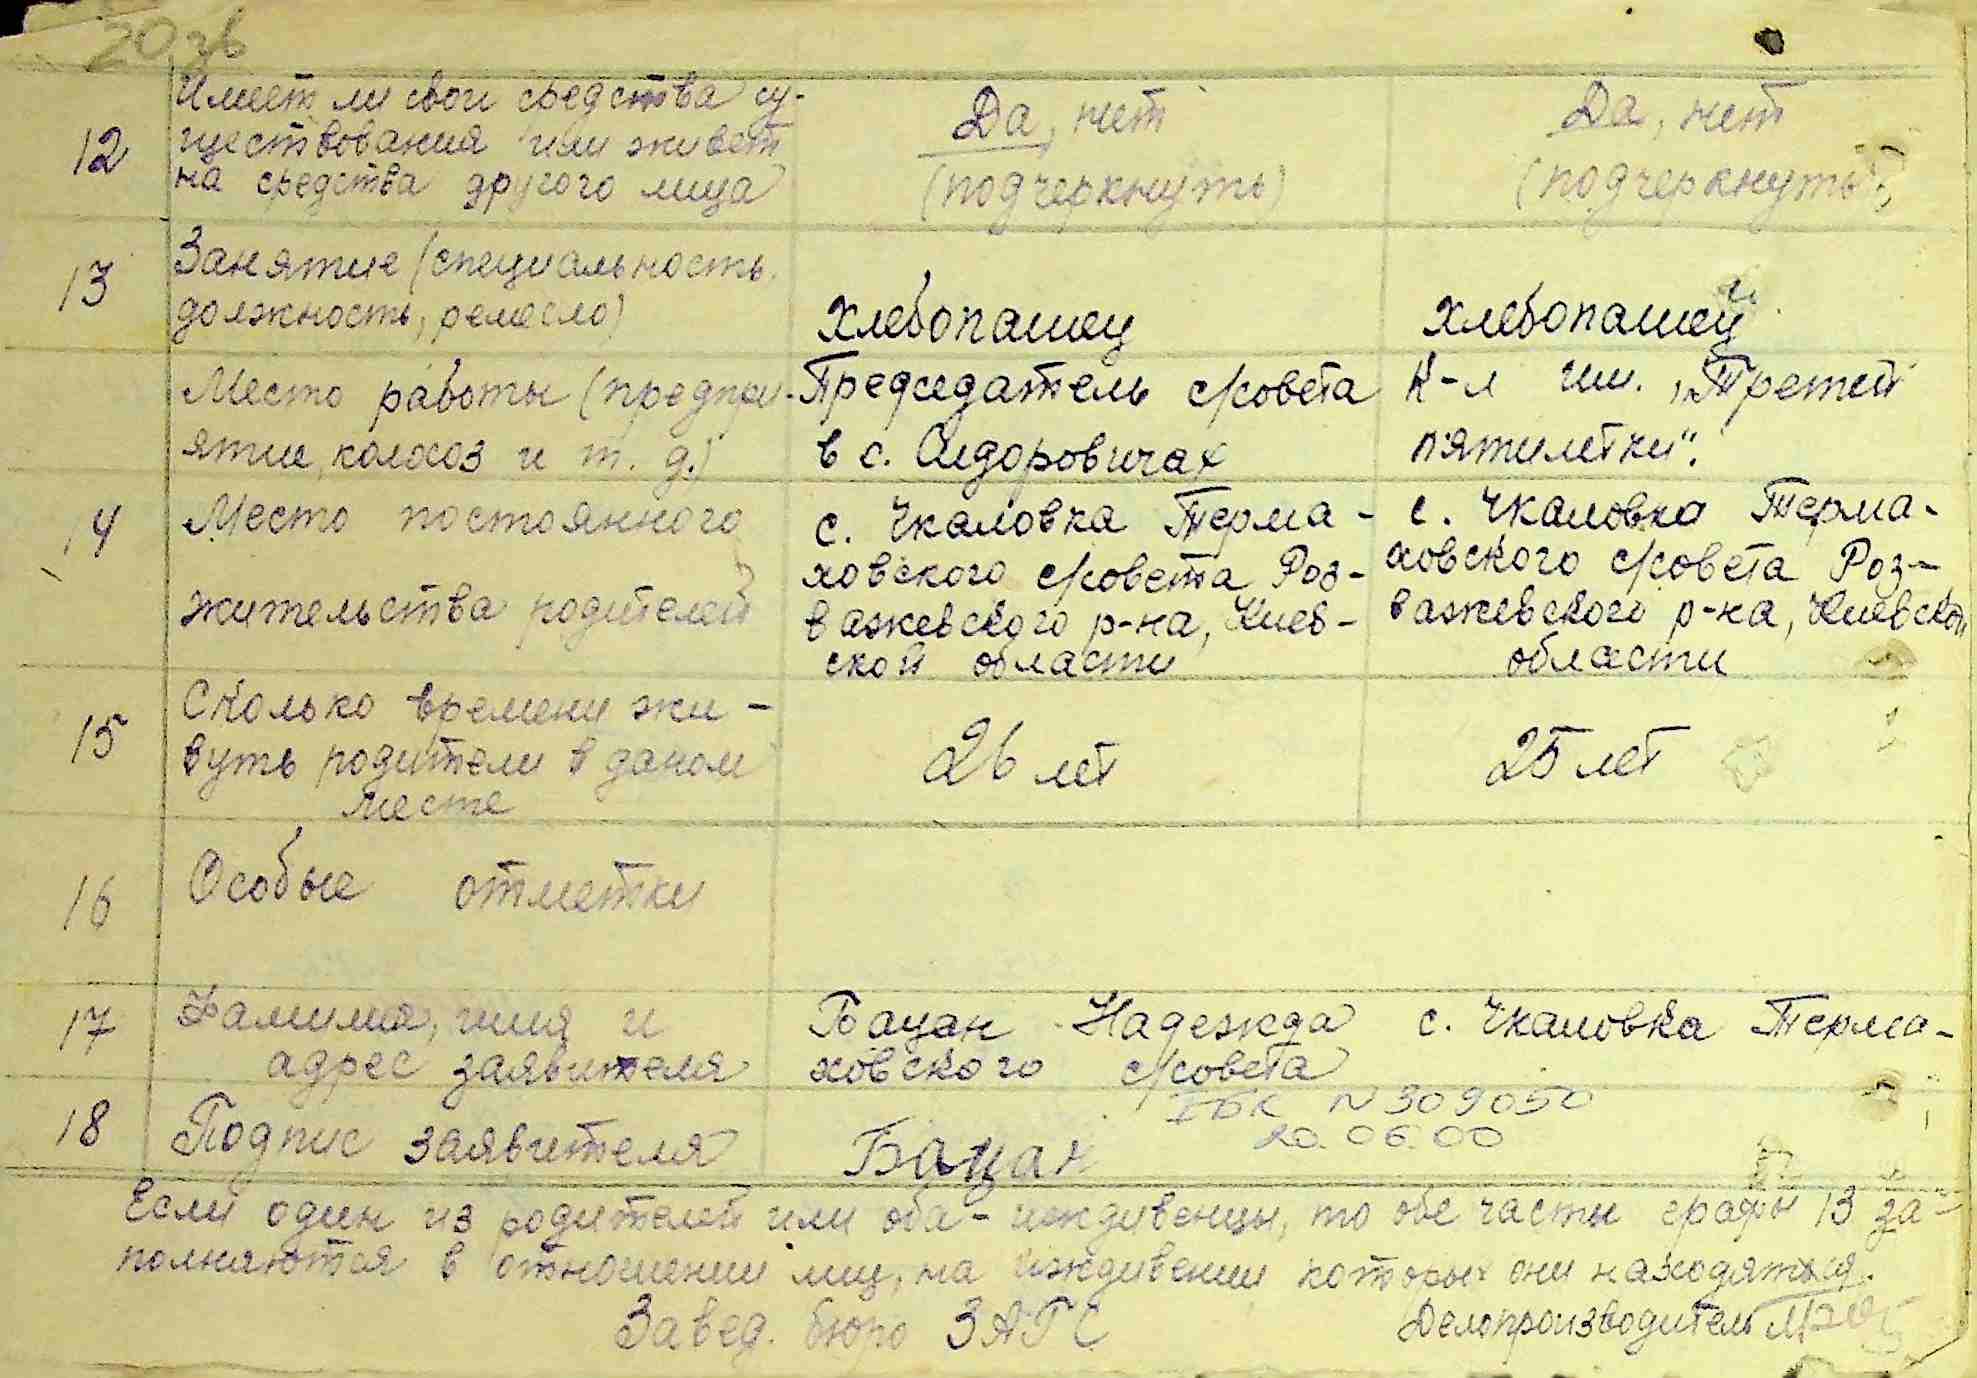 20 зв
12 Имеет ли свои средства су-
ществования или живет
на средства другого лица
Да, нет
(подчеркнуть)
Да, нет
(подчеркнуть)
13 Занятие (специальность,
должность, ремесло)
хлебопашец
хлебопашец
Место работы (предпри-
ятие, колхоз и т. д.)
Председатель с/совета
в с. Сидоровичах
К-з им. „Третей
пятилетки".
14 Место постоянного
жительства родителей
с. Чкаловка Терма-
ховского с/совета Роз-
важевского р-на, Киев-
ской области
с. Чкаловка Терма-
ховского с/совета Роз-
важевского р-на, Киевской
области
15 Сколько времени жи-
вуть родители в даном
месте
26 лет
25 лет
16 Особые отметки
17 Фамилия, имя и
адрес заявителя
Бацан Надежда с. Чкаловка Терма-
ховского с/совета
18 Подпис заявителя
Бацан
ІБК N 309050
20.06.00
Если один из родителей или оба - иждивенцы, то обе части графы 13 за-
полняются в отношении лиц, на иждивении которых они находяться.
Завед. бюро ЗАГС
Делопроизводитель